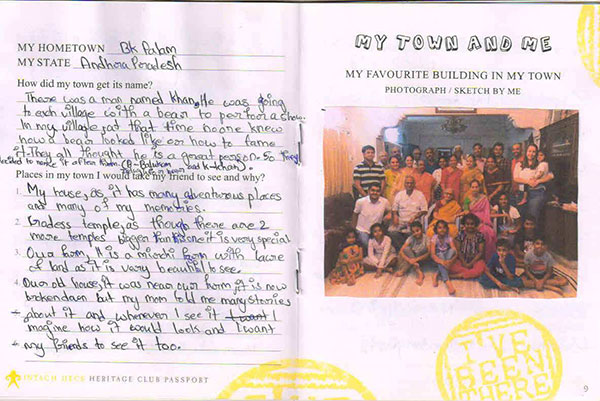 MY HOMETOWN BK Palam
MY STATE Andhra Pradesh
How did my town get its name?
There was a man named Khan, He was going
to each village with a bear to perform a show.
In my village, at that time no one knew
how a bear looked like or how to tame
it. They all thought he is a great person. So they
decided to name it after him. (B - Balukam and K - Khan).
Places in my town I would take my friend to see and why?
1. My house, as it has many adventurous places
and many of my memories.
2. Godess temple, as though there are 2
more temples bigger than this one it is very special
3. Our farm, It is a mirchi farm with
of land as it is very beautiful to see.
4. Our old house, it was near our home, it is now
broken down but my mom told me many stories
about it and whenever I see it I want I
imagine how it would look and I want
my friends to see it too.
INTACH HECS HERITAGE CLUB PASSPORT
MY TOWN AND ME
MY FAVOURITE BUILDING IN MY TOWN
PHOTOGRAPH / SKETCH BY ME
I'VE
BEEN
THERE
9